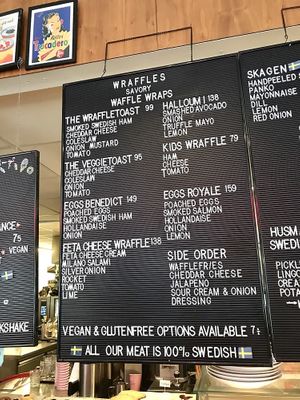 Trocadero
WRAFFLES
SAVORY
WAFFLE WRAPS
THE WRAFFLETOAST 99
SMOKED SWEDISH HAM
CHEDDAR CHEESE
COLESLAW
ONION MUSTARD
TOMATO
THE VEGGIETOAST 95
CHEDDAR CHEESE
COLESLAW
ONION
TOMATO
EGGS BENEDICT 149
POACHED EGGS
SMOKED SWEDISH HAM
HOLLANDAISE
ONION
FETA CHEESE WRAFFLE 138
FETA CHEESE CREAM
MILANO SALAMI
SILVERONION
ROCKET
TOMATO
LIME
HALLOUMI 138
SMASHED AVOCADO
ONION
TRUFFLE MAYO
LEMON
KIDS WRAFFLE 79
HAM
CHEESE
TOMATO
EGGS ROYALE 159
POACHED EGGS
SMOKED SALMON
HOLLANDAISE
ONION
LEMON
SIDE ORDER
WAFFLEFRIES
CHEDDAR CHEESE
JALAPENO
SOUR CREAM & ONION
DRESSING
VEGAN & GLUTENFREE OPTIONS AVAILABLE
ALL OUR MEAT IS 100% SWEDISH
75
VEGAN
KSHAKE
SKAGEN
HANDPEELED
PANKO
MAYONNAISE
DILL
LEMON
RED ONION
HUSM
SWEDI
PICKL
LING
CREA
ONIO